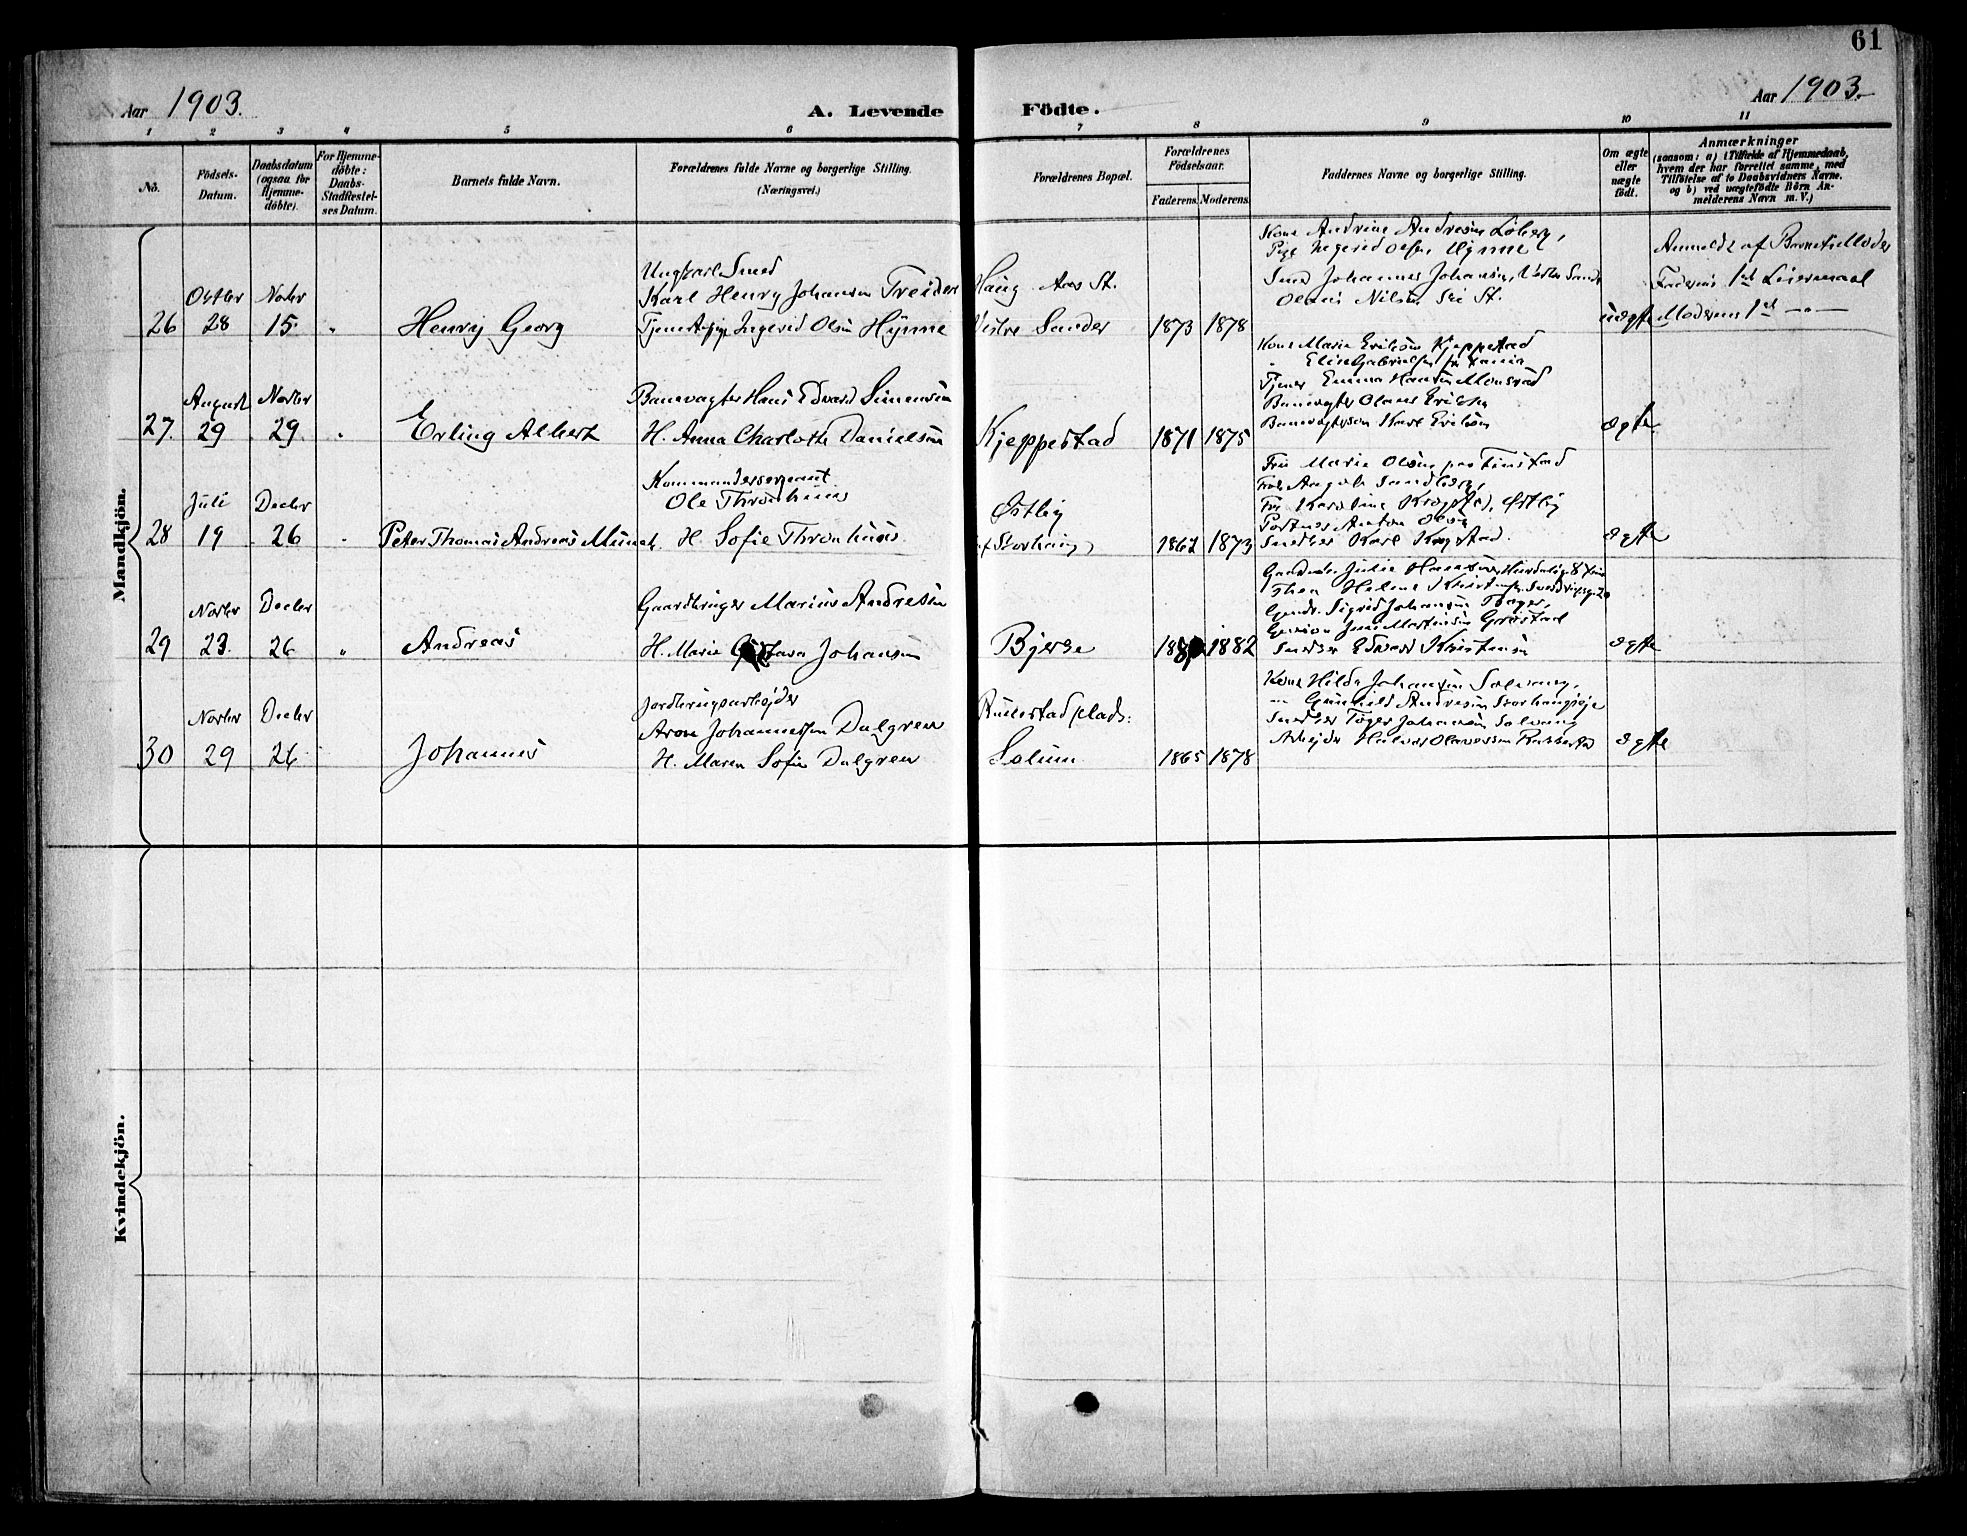 61
Aar 1903.
A. Levende
Födte.
Aar 1903.
1 2 3 4 5 6 7 8 9 10 11
No.
Födsels-
Datum.
Daabsdatum
(ogsaa for
Hjemme-
döbte).
For Hjemme-
döbte:
Daabs-
Stadfestel-
ses Datum.
Barnets fulde Navn.
Forældrenes fulde Navne og borgerlige Stilling.
(Næringsvei.)
Forældrenes Bopæl.
Forældrenes
Födselsaar.
Faderens. Moderens.
Faddernes Navne og borgerlige Stilling.
Om ægte
eller
uægte
födt.
Anmærkninger
(saasom: a) i Tilfælde af Hjemmedaab,
hvem der har forrettet samme, med
Tilföielse af to Daabsvidners Navne.
og b) ved uægtefödte Börn An-
melderens Navn m. V.)
Mandkjön.
26
Octbr
28
Novbr
15.
"
Henrij Georg
Ungkarl Smed
Karl Henry Johansen Treider
Tjenestepige Ingerid Olsen Hynne
Haug Aas St.
Vestre Sander
1873 1878
Kone Andrine Andresen Löberg,
Pige Ingerid Olsen Hynne
Smed Johannes Johansen, Vestre Sander
Olaus Nilsen Ski St.
uægte
Anmeldt af Barnets Moder
Faderens 1st Leiermaal
Moderens 1st — " —
27.
August
29
Novbr
29.
"
Erling Albert
Banevagter Hans Edvard Simensen
H. Anna Charlotte Danielsen
Kjeppestad
1871 1875
Kone Marie Eriksen Kjeppestad
Elise Gabrielsen fra
Tjener Emma Hansen Monsrud
Banevagter Olaus Eriksen
Banevogterson Karl Eriksen
ægte
28
Juli
19
Decbr
26
"
Peter Thomas Andreas Munch.
Kommandersergeant
Ole Thronhuus
H. Sofie Thronhuus.
Østby
af Storhaug)
1862 1873
Fru Marie Olsen
Frk. Sandberg,
Frk Karoline Krogstad, Østby
Portner Anton Olsen
Snedker Karl Krogstad.
ægte
29
Novbr
23.
Decbr
26
"
Andreas
Gaardbruger Marius Andresen
H. Marie Gustava Johansen
Bjerke
1882
Helene
Sigrid Johansen
Snedker Edvard Kristensen
ægte
30
Novbr
29
Decbr
26
Johannes
Jordbrugsarbejder
Aron Johannessen Dalgren
H. Maren Sofie Dalgren
Rullestad plads:
Solum.
1865 1878
Kone Hilda Johansen Solvang,
— Gunhild Andresen
Snedker Johansen Solvang
Arbejder Halvor Olavessen
ægte
Kvindekjön.